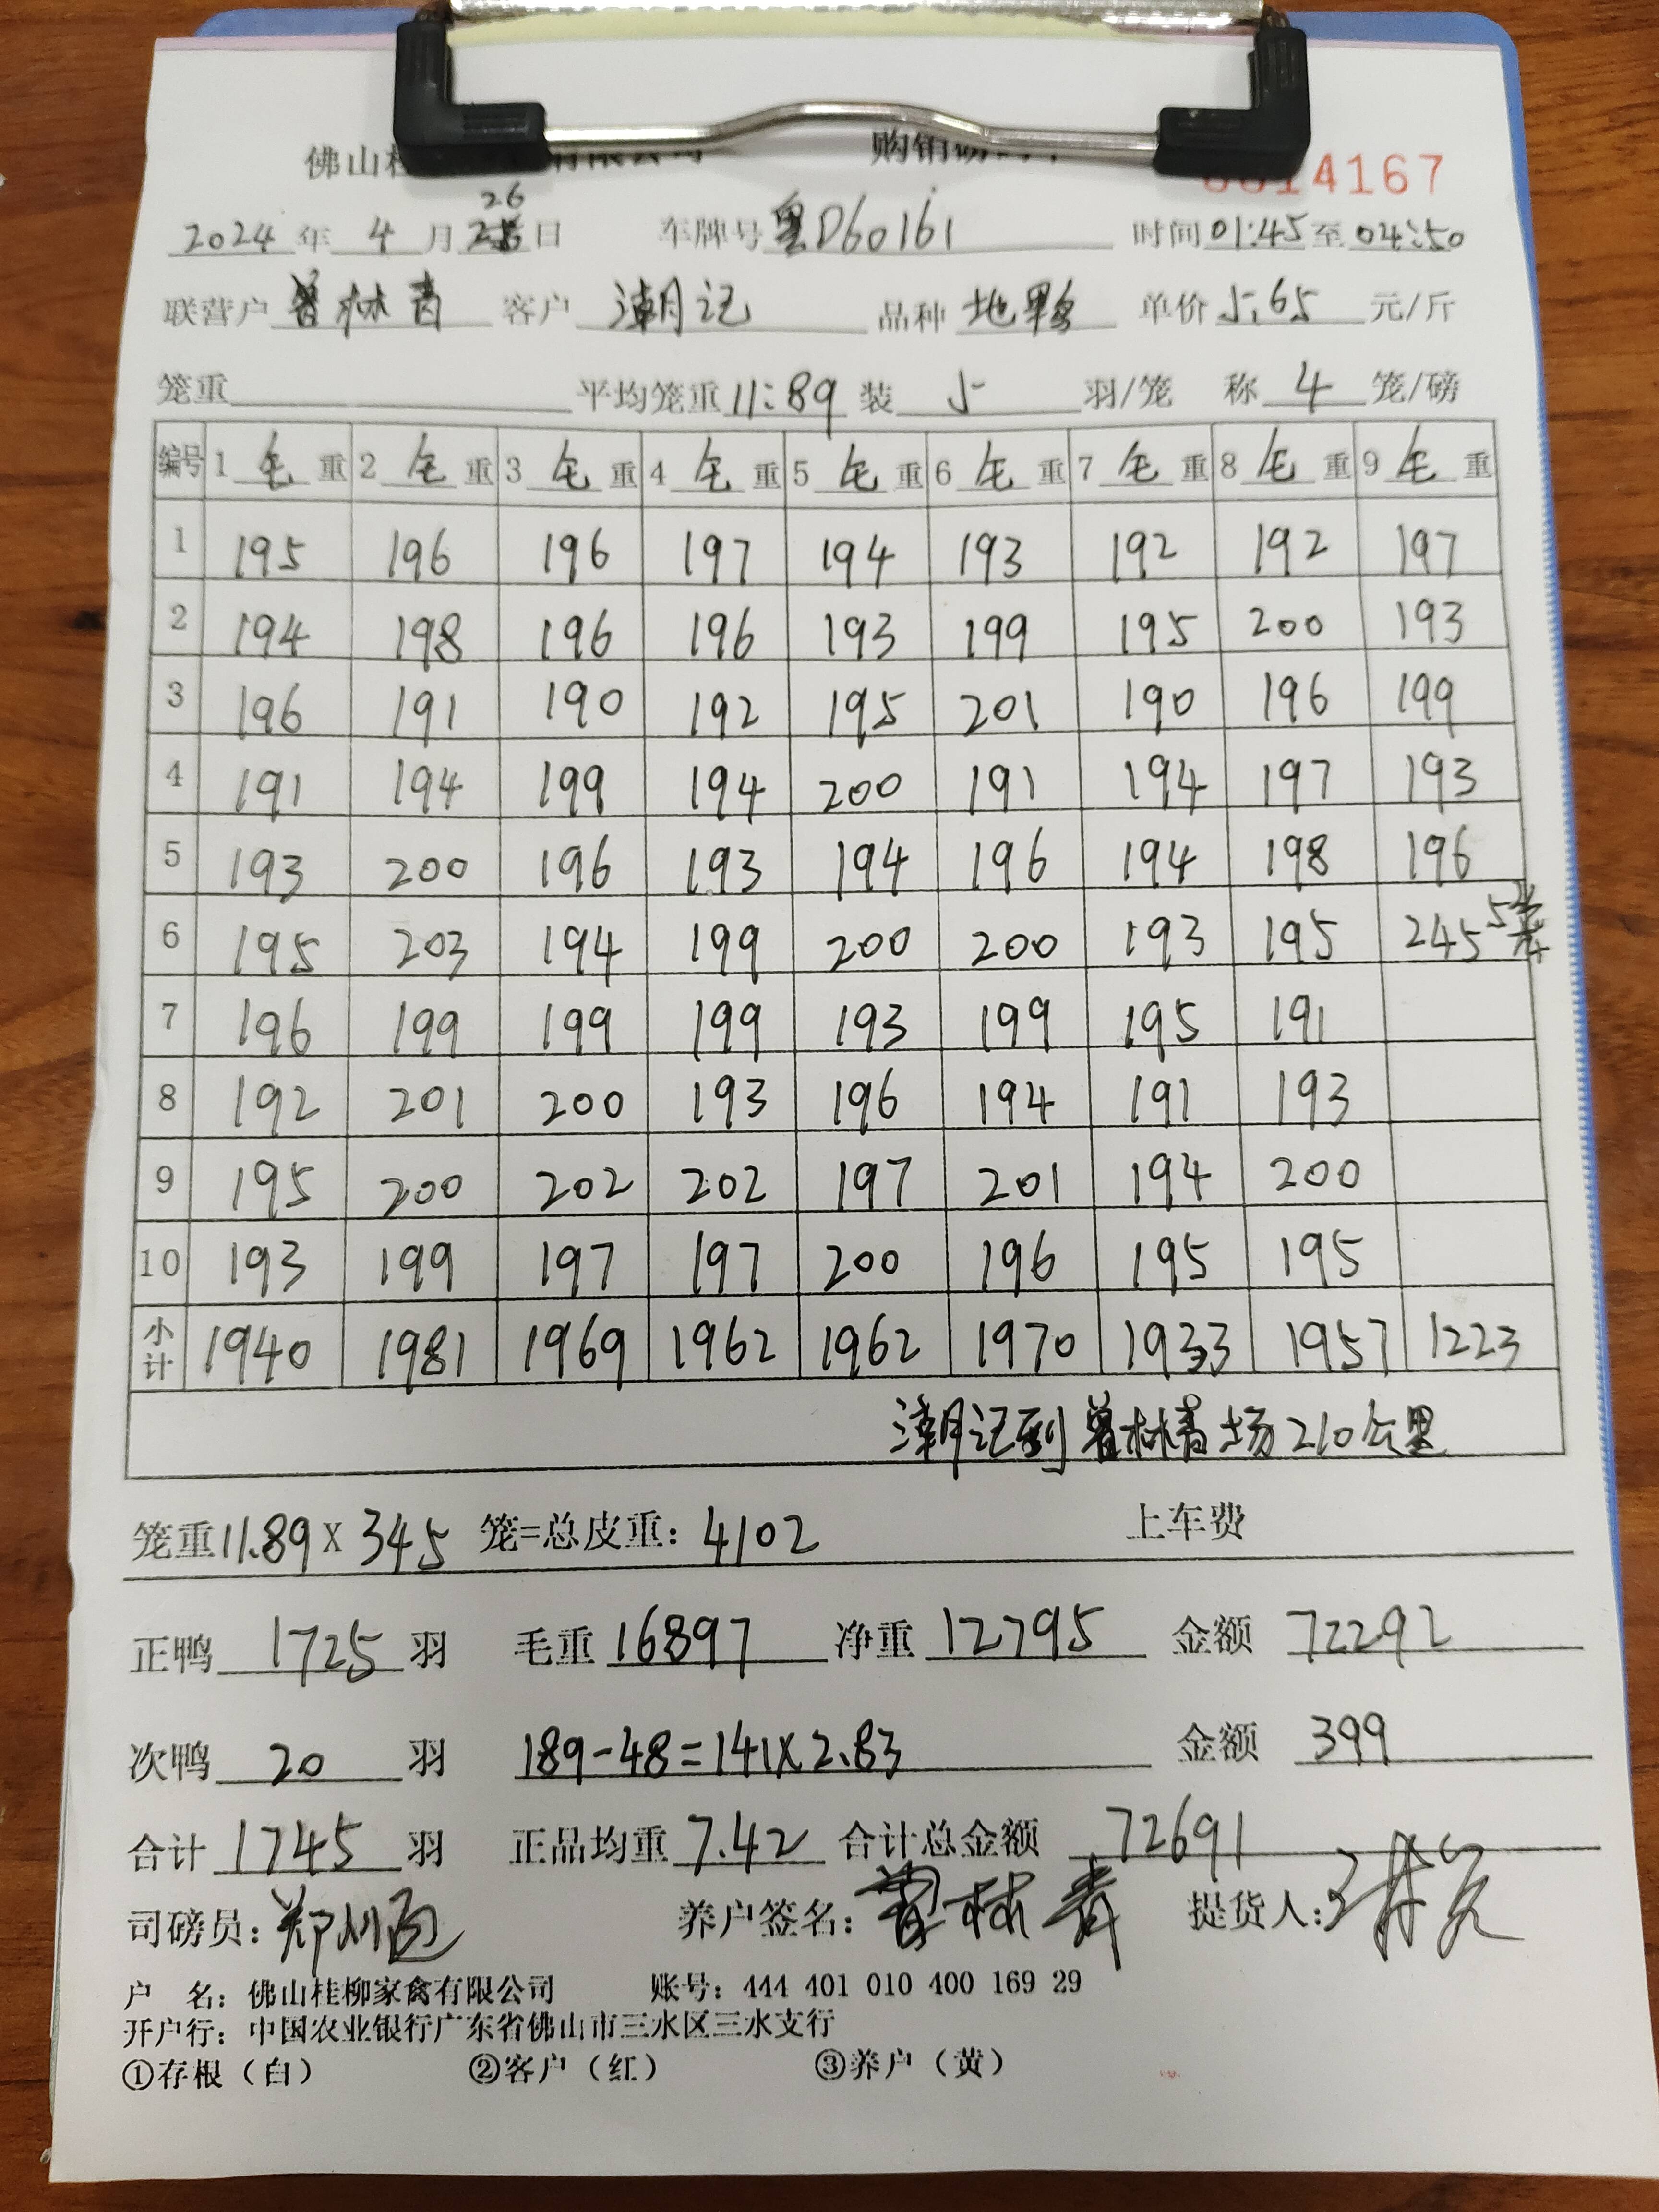 佛山桂 有限公司 购销磅码单 0014167
2024 年 4 月 26 日 车牌号 粤D60161 时间 01:45 至 04:50
联营户 曾林青 客户 潮记 品种 地鸭 单价 5.65 元/斤
笼重 平均笼重 11:89 装 5 羽/笼 称 4 笼/磅
编号 1 毛 重 2 毛 重 3 毛 重 4 毛 重 5 毛 重 6 毛 重 7 毛 重 8 毛 重 9 毛 重
1 195 196 196 197 194 193 192 192 197
2 194 198 196 196 193 199 195 200 193
3 196 191 190 192 195 201 190 196 199
4 191 194 199 194 200 191 194 197 193
5 193 200 196 193 194 196 194 198 196
6 195 203 194 199 200 200 193 195 245 5笼
7 196 199 199 199 193 199 195 191
8 192 201 200 193 196 194 191 193
9 195 200 202 202 197 201 194 200
10 193 199 197 197 200 196 195 195
小计 1940 1981 1969 1962 1962 1970 1933 1957 1223
潮记到曾林青场210公里
笼重 11.89 X 345 笼=总皮重: 4102 上车费
正鸭 1725 羽 毛重 16897 净重 12795 金额 72292
次鸭 20 羽 189-48=141X2.83 金额 399
合计 1745 羽 正品均重 7.42 合计总金额 72691
司磅员: 养户签名: 曾林青 提货人:
户 名: 佛山桂柳家禽有限公司 账号: 444 401 010 400 169 29
开户行: 中国农业银行广东省佛山市三水区三水支行
①存根（白） ②客户（红） ③养户（黄）